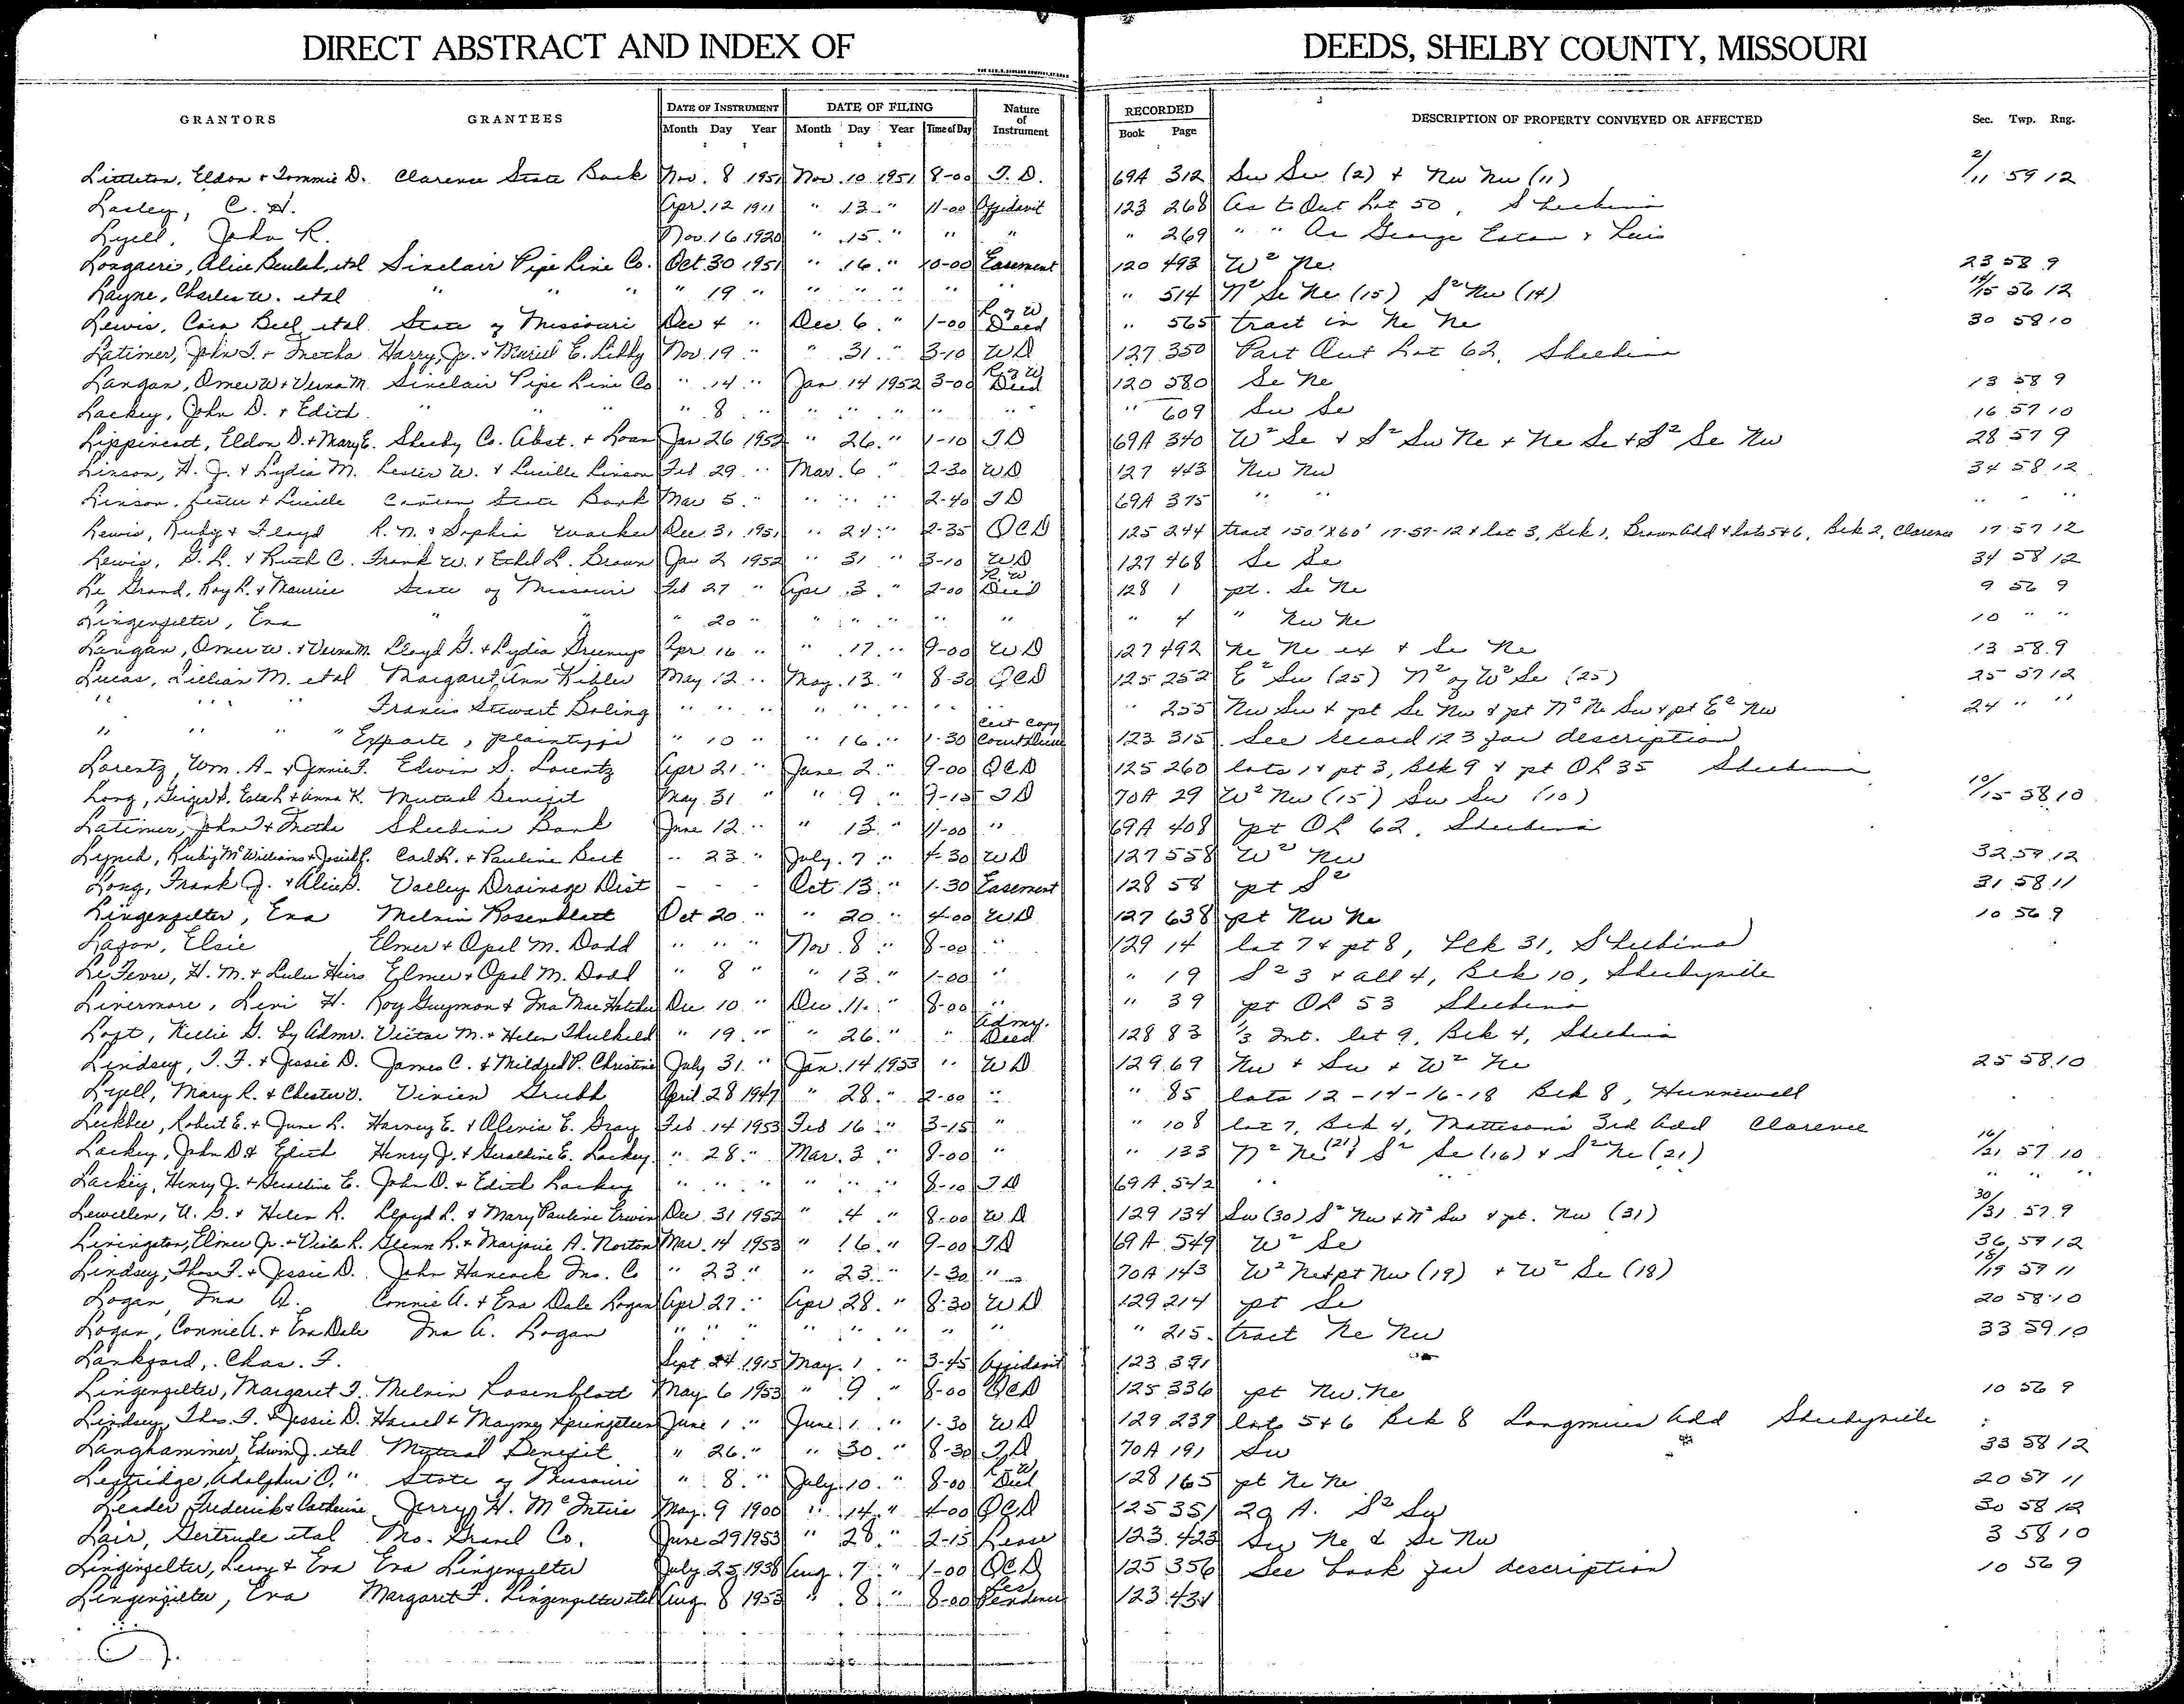 DIRECT ABSTRACT AND INDEX OF DEEDS, SHELBY COUNTY, MISSOURI
GRANTORS GRANTEES DATE OF INSTRUMENT DATE OF FILING Nature of Instrument RECORDED DESCRIPTION OF PROPERTY CONVEYED OR AFFECTED Sec. Twp. Rng.
Month Day Year Month Day Year Time of Day Book Page
Littleton, Eldon & Tommie D. Clarence State Bank Nov. 8 1951 Nov. 10 1951 8-00 T.D. 69A 312 Sw Sw (2) + Nw Nw (11) 2/11 59 12
Lasley, C. H. Apr. 12 1911 " 13 " 11-00 Affidavit 123 268 As to Out Lot 50, Shelbina
Lyell, John R. Nov. 16 1920 " 15 " " " " 269 " " Ac George Eaton &
Longacre, Alice Beulah, etal Sinclair Pipe Line Co. Oct. 30 1951 " 16 " 10-00 Easement 120 493 W² Ne 23 58 9
Layne, Charles W. etal " " " " 19 " " " " " " " 514 N² Se Ne (15) S² Nw (14) 14/15 56 12
Lewis, Cora Bell etal State of Missouri Dec 4 " Dec. 6 " 1-00 R of W Deed " 565 tract in Ne Ne 30 58 10
Latimer, John T. & Fretha Harry, Jr. & Muriel E. Libby Nov. 19 " " 31 " 3-10 WD 127 350 Part Out Lot 62, Shelbina
Langan, Omer W & Verna M. Sinclair Pipe Line Co " 14 " Jan 14 1952 3-00 R of W Deed 120 580 Se Ne 13 58 9
Lackey, John D. & Edith " " " " 8 " " " " " " " 609 Sw Se 16 57 10
Lippincott, Eldon D. & Mary E. Shelby Co. Abst. & Loan Jan 26 1952 " 26 " 1-10 TD 69A 340 W² Se & S² Sw Ne + Ne Se + S² Se Nw 28 57 9
Linson, H. J. & Lydia M. Lester W. & Lucille Linson Feb 29 " Mar. 6 " 2-30 WD 127 443 Nw Nw 34 58 12
Linson, Lester & Lucille Canton State Bank Mar 5 " " " " 2-40 TD 69A 375 " " " " "
Lewis, Ruby & Floyd R. N. & Sophia Dec. 31 1951 " 24 " 2-35 QCD 125 244 tract 150'X60' 17-57-12 & lot 3, Blk 1, Brown Add & lots 5+6, Blk 2, Clarence 17 57 12
Lewis, G. L. & Ruth C. Frank W. & Ethel L. Brown Jan 2 1952 " 31 " 3-10 WD 127 468 Se Se 34 58 12
Le Grand, Roy L. & Maurice State of Missouri Feb 27 " Apr 3 " 2-00 R.W. Deed 128 1 pt. Se Ne 9 56 9
Lingenfelter, Era " " 20 " " " " " " " 4 " Nw Ne 10 " "
Langan, Omer W. & Verna M. Lloyd G. & Lydia Greenup Apr 16 " " 17 " 9-00 WD 127 492 Ne Ne ex & Se Ne 13 58 9
Lucas, Lillian M. etal Margaret Ann Kibler May 12 " May 13 " 8-30 QCD 125 252 E² Sw (25) N² of W² Se (25) 25 57 12
" " " Francis Stewart Boling " " " " " " " " " 255 Nw Sw & pt Se Nw & pt N² Ne Sw & pt E² Nw 24 " "
" " " " Exparte, plaintiffs " 10 " " 16 " 1-30 Cert Copy Court Decree 123 315 See record 123 for description
Lorentz, Wm. A. & Jennie F. Edwin S. Lorentz Apr 21 " June 2 " 9-00 QCD 125 260 lots 1 & pt 3, Blk 9 & pt OL 35 Shelbina
Long, S. Esta L & Anna K. Mutual Benefit May 31 " " 9 " 9-15 TD 70A 29 W² Nw (15) Sw Sw (10) 10/15 58 10
Latimer, John T & Fretha Shelbina Bank June 12 " " 13 " 11-00 " 69A 408 pt OL 62, Shelbina
Lynch, Ruby McWilliams & Carl R. & Pauline Burt " 23 " July 7 " 4-30 WD 127 558 W² Nw 32 59 12
Long, Frank J. & Alice D. Valley Drainage Dist - - - Oct 13 " 1-30 Easement 128 58 pt S² 31 58 11
Lingenfelter, Era Melvin Rosenblatt Oct 20 " " 20 " 4-00 WD 127 638 pt Nw Ne 10 56 9
Lason, Elsie Elmer & Opel M. Dodd " " " Nov. 8 " 8-00 " 129 14 lot 7 & pt 8, Blk 31, Shelbina
Le Fevre, H. M. & Lulu Heirs Elmer & Opal M. Dodd " 8 " " 13 " 1-00 " " 19 S² 3 & all 4, Blk 10, Shelbyville
Livermore, Levi H. Roy Guymon & Ina Mae Hatcher Dec 10 " Dec 11 " 8-00 " " 39 pt OL 53 Shelbina
Loft, Nellie G. by Admr. Victor M. & Helen Thulkeld " 19 " " 26 " " Admr. Deed 128 83 1/3 Int. lot 9, Blk 4, Shelbina
Lindsey, T. F. & Jessie D. James C. & Mildred P. Christine July 31 " Jan. 14 1953 " WD 129 69 Nw & Sw & W² Ne 25 58 10
Lyell, Mary R. & Chester O. Vivien Grubb April 28 1947 " 28 " 2-00 " " 85 lots 12-14-16-18 Blk 8, Hunnewell
Lickbee, Robert E. & June L. Harvey E. & Alevia E. Gray Feb 14 1953 Feb 16 " 3-15 " " 108 lot 7, Blk 4, Mattesons 3rd Add Clarence
Lackey, John D. & Edith Henry J. & Geraldine E. Lackey " 28 " Mar. 3 " 8-00 " " 133 N² Ne (21) S² Se (16) & S² Ne (21) 16/21 57 10
Lackey, Henry J. & Geraldine E. John D. & Edith Lackey " " " " " " 8-10 TD 69A 542 " " " " "
Lewellen, U. G. & Helen R. Lloyd L. & Mary Pauline Erwin Dec. 31 1952 " 4 " 8-00 WD 129 134 Sw (30) S² Nw & N² Sw & pt. Nw (31) 30/31 57 9
Livingston, Elmer Jr. & Viola R. Glenn R. & Marjorie A. Norton Mar. 14 1953 " 16 " 9-00 TD 69A 549 W² Se 36 59 12
Lindsey, Thos F. & Jessie D. John Hancock Ins. Co " 23 " " 23 " 1-30 " 70A 143 W² Ne & pt Nw (19) + W² Se (18) 18/19 57 11
Logan, Ina A. Connie A. & Era Dale Logan Apr 27 " Apr 28 " 8-30 WD 129 214 pt Se 20 58 10
Logan, Connie A. & Era Dale Ina A. Logan " " " " " " " " " 215 tract Ne Nw 33 59 10
Lankford, Chas. F. Sept. 24 1915 May 1 " 3-45 Affidavit 123 391
Lingenfelter, Margaret F. Melvin Rosenblatt May 6 1953 " 9 " 8-00 QCD 125 336 pt Nw Ne 10 56 9
Lindsey, Thos. F. & Jessie D. & Maymey Springsteen June 1 " June 1 " 1-30 WD 129 239 lots 5+6 Blk 8 Longmires Add Shelbyville
Langhammer, Edwin J. etal Mutual Benefit " 26 " " 30 " 8-30 TD 70A 191 Sw 33 58 12
Leftridge, Adolphus O. " State of Missouri " 8 " July 10 " 8-00 R W Deed 128 165 pt Ne Ne 20 57 11
Leader, Frederick & Catherine Jerry H. McIntire May 9 1900 " 14 " 4-00 QCD 125 351 20 A. S² Sw 30 58 12
Lair, Gertrude etal Mo. Gravel Co. June 29 1953 " 28 " 2-15 Lease 123 423 Sw Ne & Se Nw 3 58 10
Lingenfelter, Leroy & Era Era Lingenfelter July 25 1938 Aug. 7 " 1-00 QCD 125 356 See book for description 10 56 9
Lingenfelter, Era Margaret F. Lingenfelter etal Aug. 8 1953 " 8 " 8-00 Les Pendence 123 431